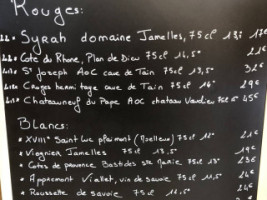 Rouges:
Syrah domaine Jamelles, 75cl 13; 17€
Cote du Rhone, Plan de Dieu 75cl 14,5° 21€
St Joseph AOC cave de Tain 75cl 13,5° 32€
Crozes hermitage cave de Tain 75cl 14° 29€
Chateauneuf du Pape AOC chateau 75cl 45€
Blancs:
• XVIII° Saint Luc (Moelleux) 75cl 11° 21€
• Viognier Jamelles 75cl 13.5° 19€
• Cotes de provence Bastides Ste Marie 75cl 13° 23€
• Appremont Viallet, vin de savoie 75cl 11,5° 21€
• Roussette de savoie 75cl 11.5° 24€